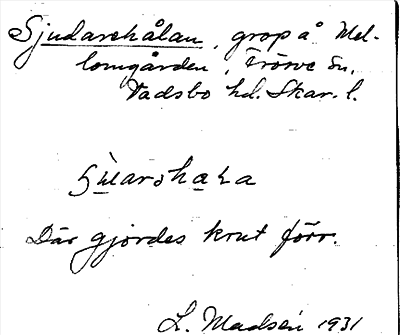 Sjudarehålan, grop å Mel-
lomgården, Tröve sn,
Vadsbo hd. Skar. l.
Där gjordes krut förr.
L. Madsén 1931